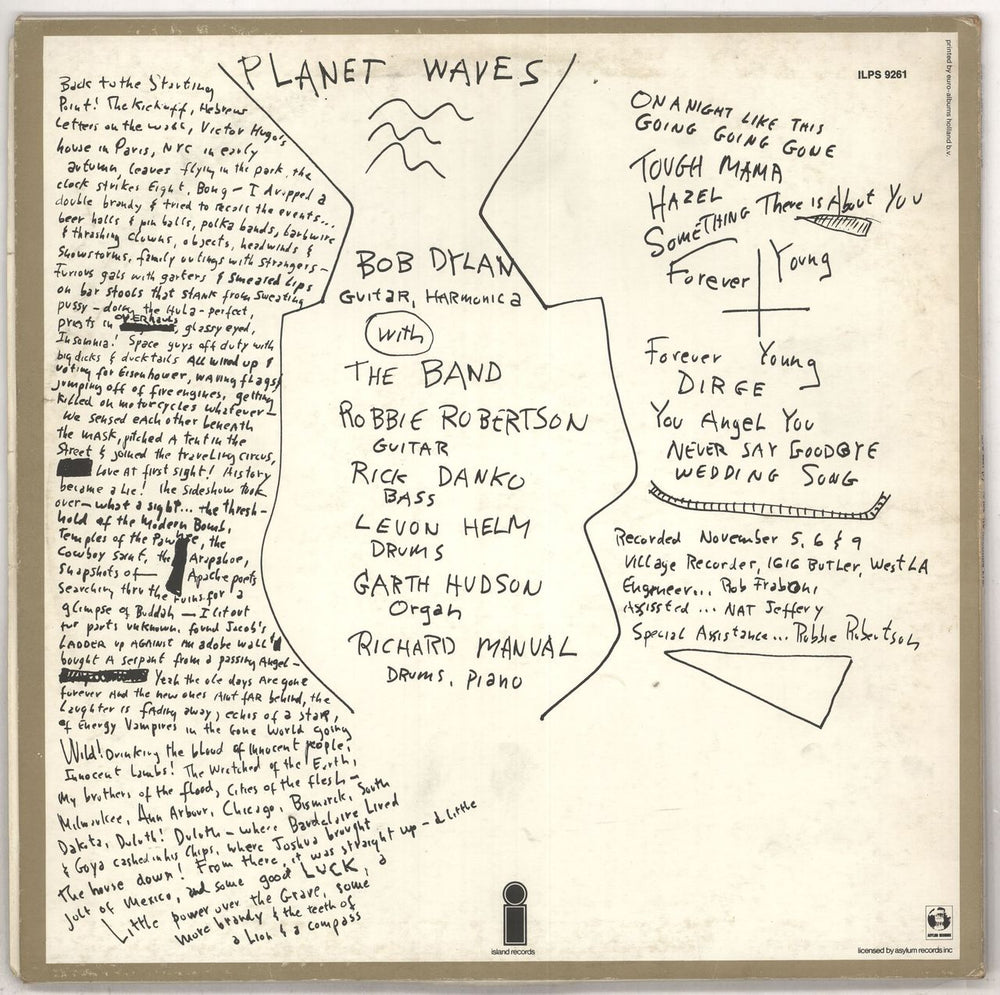 PLANET WAVES
Back to the Starting
Point! The Kickoff, Hebrew
Letters on the wall, Victor Hugo's
house in Paris, NYC in early
autumn, leaves flying in the park, the
clock strikes Eight, Bong – I dropped a
double brandy & tried to recall the events...
beer halls & pin balls, polka bands, barbwire
& thrashing clowns, objects, headwinds &
Snowstorms, family outings with strangers –
Furious gals with garters & smeared Lips
on bar stools that stank from sweating
pussy – doing the Hula – perfect,
priests in OVERhauls, glassy eyed,
Insomnia! Space guys off duty with
big dicks & ducktails All wired up &
voting for Eisenhower, waving flags &
jumping off of fire engines, getting
Killed on motorcycles whatever –
We sensed each other beneath
the mask, pitched A tent in the
Street & joined the traveling circus,
Love At first sight! History
became a Lie! The sideshow took
over – what a sight... the thresh-
hold of the Modern Bomb,
Temples of the Pawnee, the
Cowboy saint, the Arapahoe,
snapshots of – Apache poets
searching thru the ruins for a
glimpse of Buddah – I lit out
for parts unknown, found Jacob's
LADDER up AGAINST an adobe wall &
bought A serpent from a passing Angel –
Yeah the ole days Are gone
forever And the new ones Aint fAR behind, the
Laughter is fAding away, echos of a staR,
of Energy Vampires in the Gone World going
Wild! Drinking the blood of innocent people,
Innocent Lambs! The Wretched of the Earth,
My brothers of the flood, Cities of the flesh –
Milwaukee, Ann Arbour, Chicago, Bismarck, South
Dakota, Duluth! Duluth – where Baudelaire Lived
& Goya cashed in his Chips, where Joshua brought
the house down! From there, it was straight up – a little
jolt of Mexico, and some good LUCK, a
Little power over the Grave, some
more brandy & the teeth of
a Lion & a compass
BOB DYLAN
GUITAR, HARMONICA
with
THE BAND
ROBBIE ROBERTSON
GUITAR
RICK DANKO
BASS
LEVON HELM
DRUMS
GARTH HUDSON
Organ
RICHARD MANUAL
DRUMS, PIANO
ILPS 9261
printed by euro-albums holland b.v.
ON A NIGHT LIKE THIS
GOING GOING GONE
TOUGH MAMA
HAZEL
SOMETHING There is About You
Forever Young
Forever Young
DIRGE
You Angel You
NEVER SAY GOODBYE
WEDDING SONG
Recorded November 5, 6 & 9
Village Recorder, 1616 Butler, West LA
Engineer... Rob Fraboni
Assissted ... NAT Jeffery
Special Assistance... Robbie Robertson
island records
ASYLUM RECORDS
licensed by asylum records inc